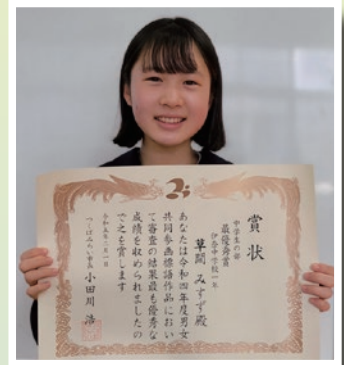 賞状
中学生の部
最優秀賞
伊奈中学校一年
草間 みすず殿
あなたは令和四年度男女
共同参画標語作品におい
て審査の結果最も優秀な
成績を収められましたの
で之を賞します
令和五年二月一日
つくばみらい市長 小田川 浩